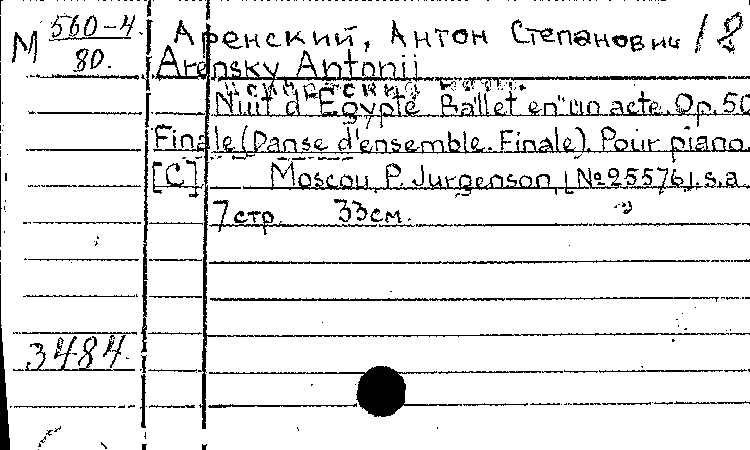 М 560-4/80. Аренский, Антон Степанович / 2
Arensky Antonii
Nuit d'Egypte Ballet en un acte. Op. 50
Finale (Danse d'ensemble. Finale). Pour piano.
[C] Moscou, P. Jurgenson, [№25576]. s.a.
7 стр. 33см.
3484.